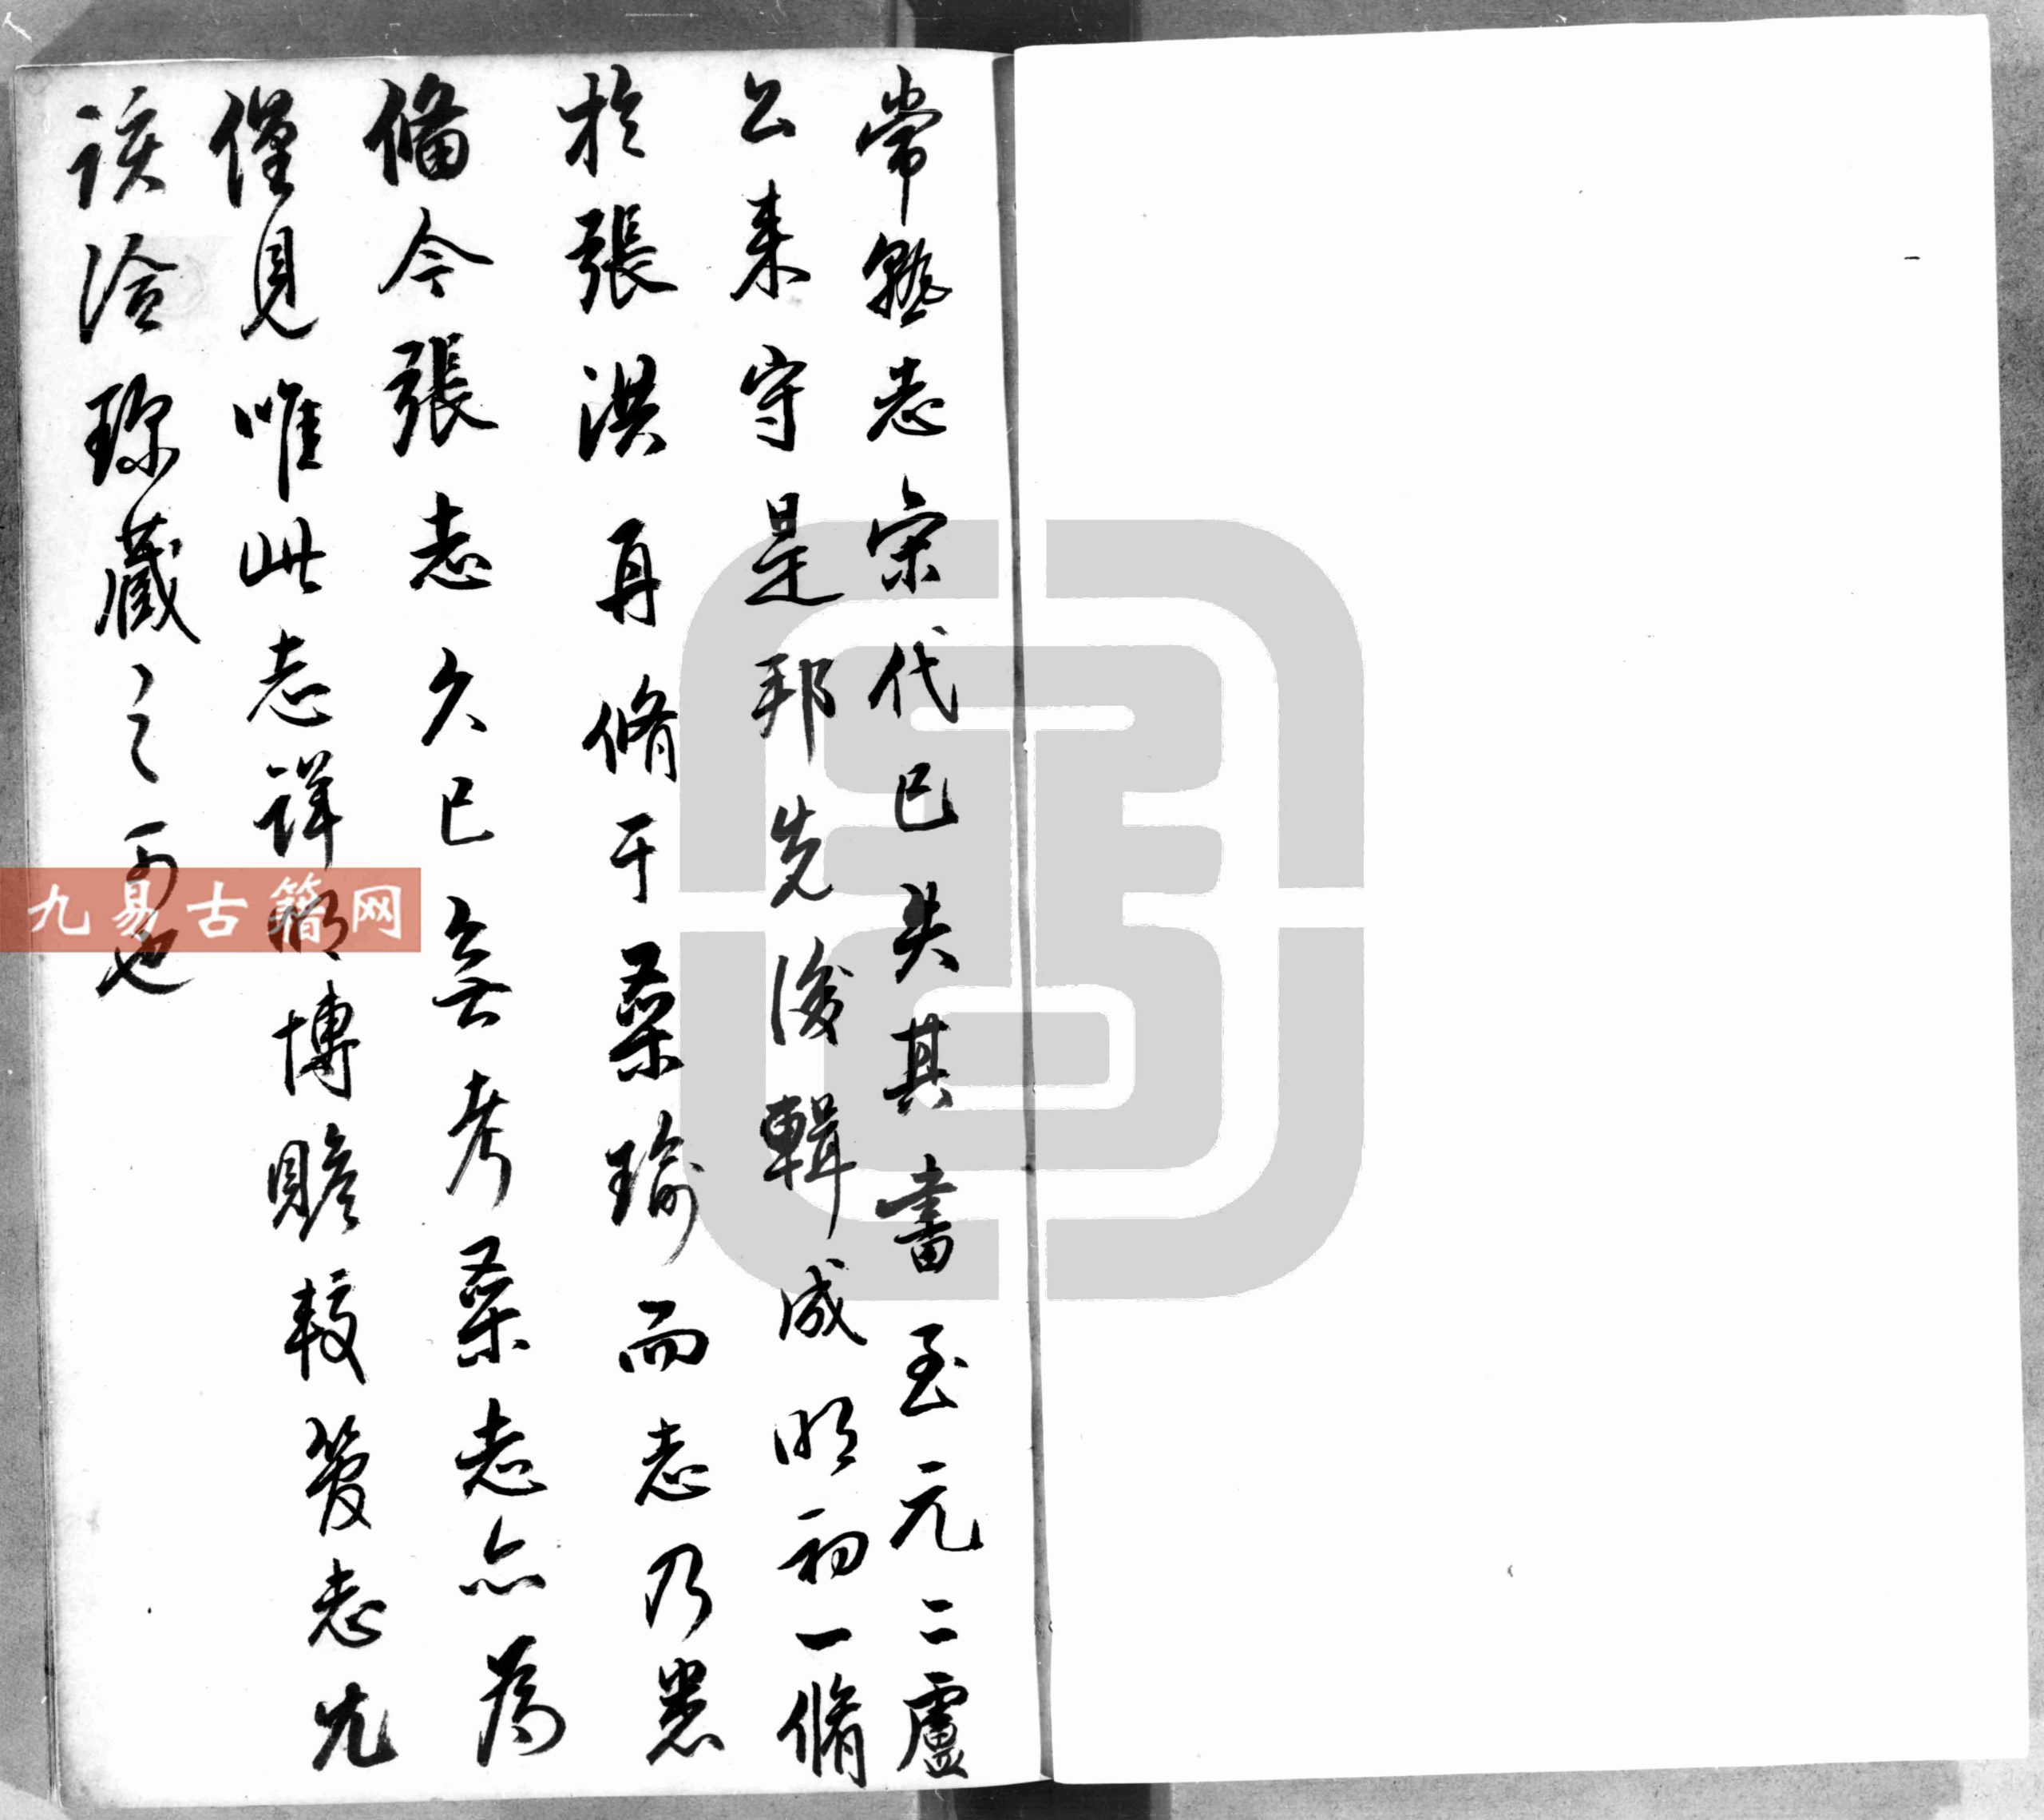 常熟志宋代已失其書至元二盧
公来守是邦先後輯成明初一脩
於張洪再脩于桑瑜而志乃悉
備今張志久已無考桑志亦為
僅見唯此志詳明博贍較管志尤
該洽珎藏之可也
九易古籍网